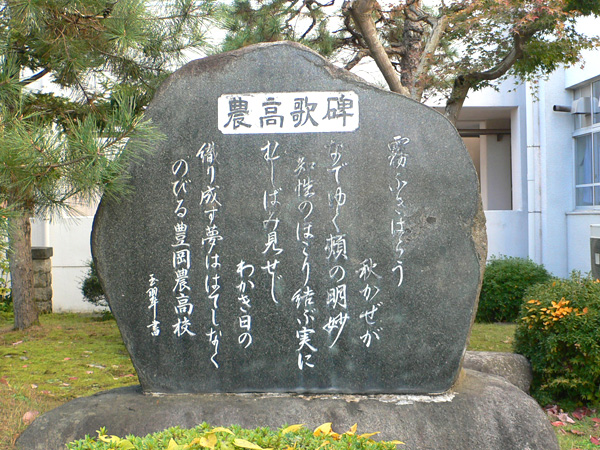 農高歌碑
霧ふきはらう
秋かぜが
なでゆく頬の明妙
知性のほこり結ぶ実に
むしばみ見せじ
わかき日の
織り成す夢ははてしなく
のびる豊岡農高校
玉翠書